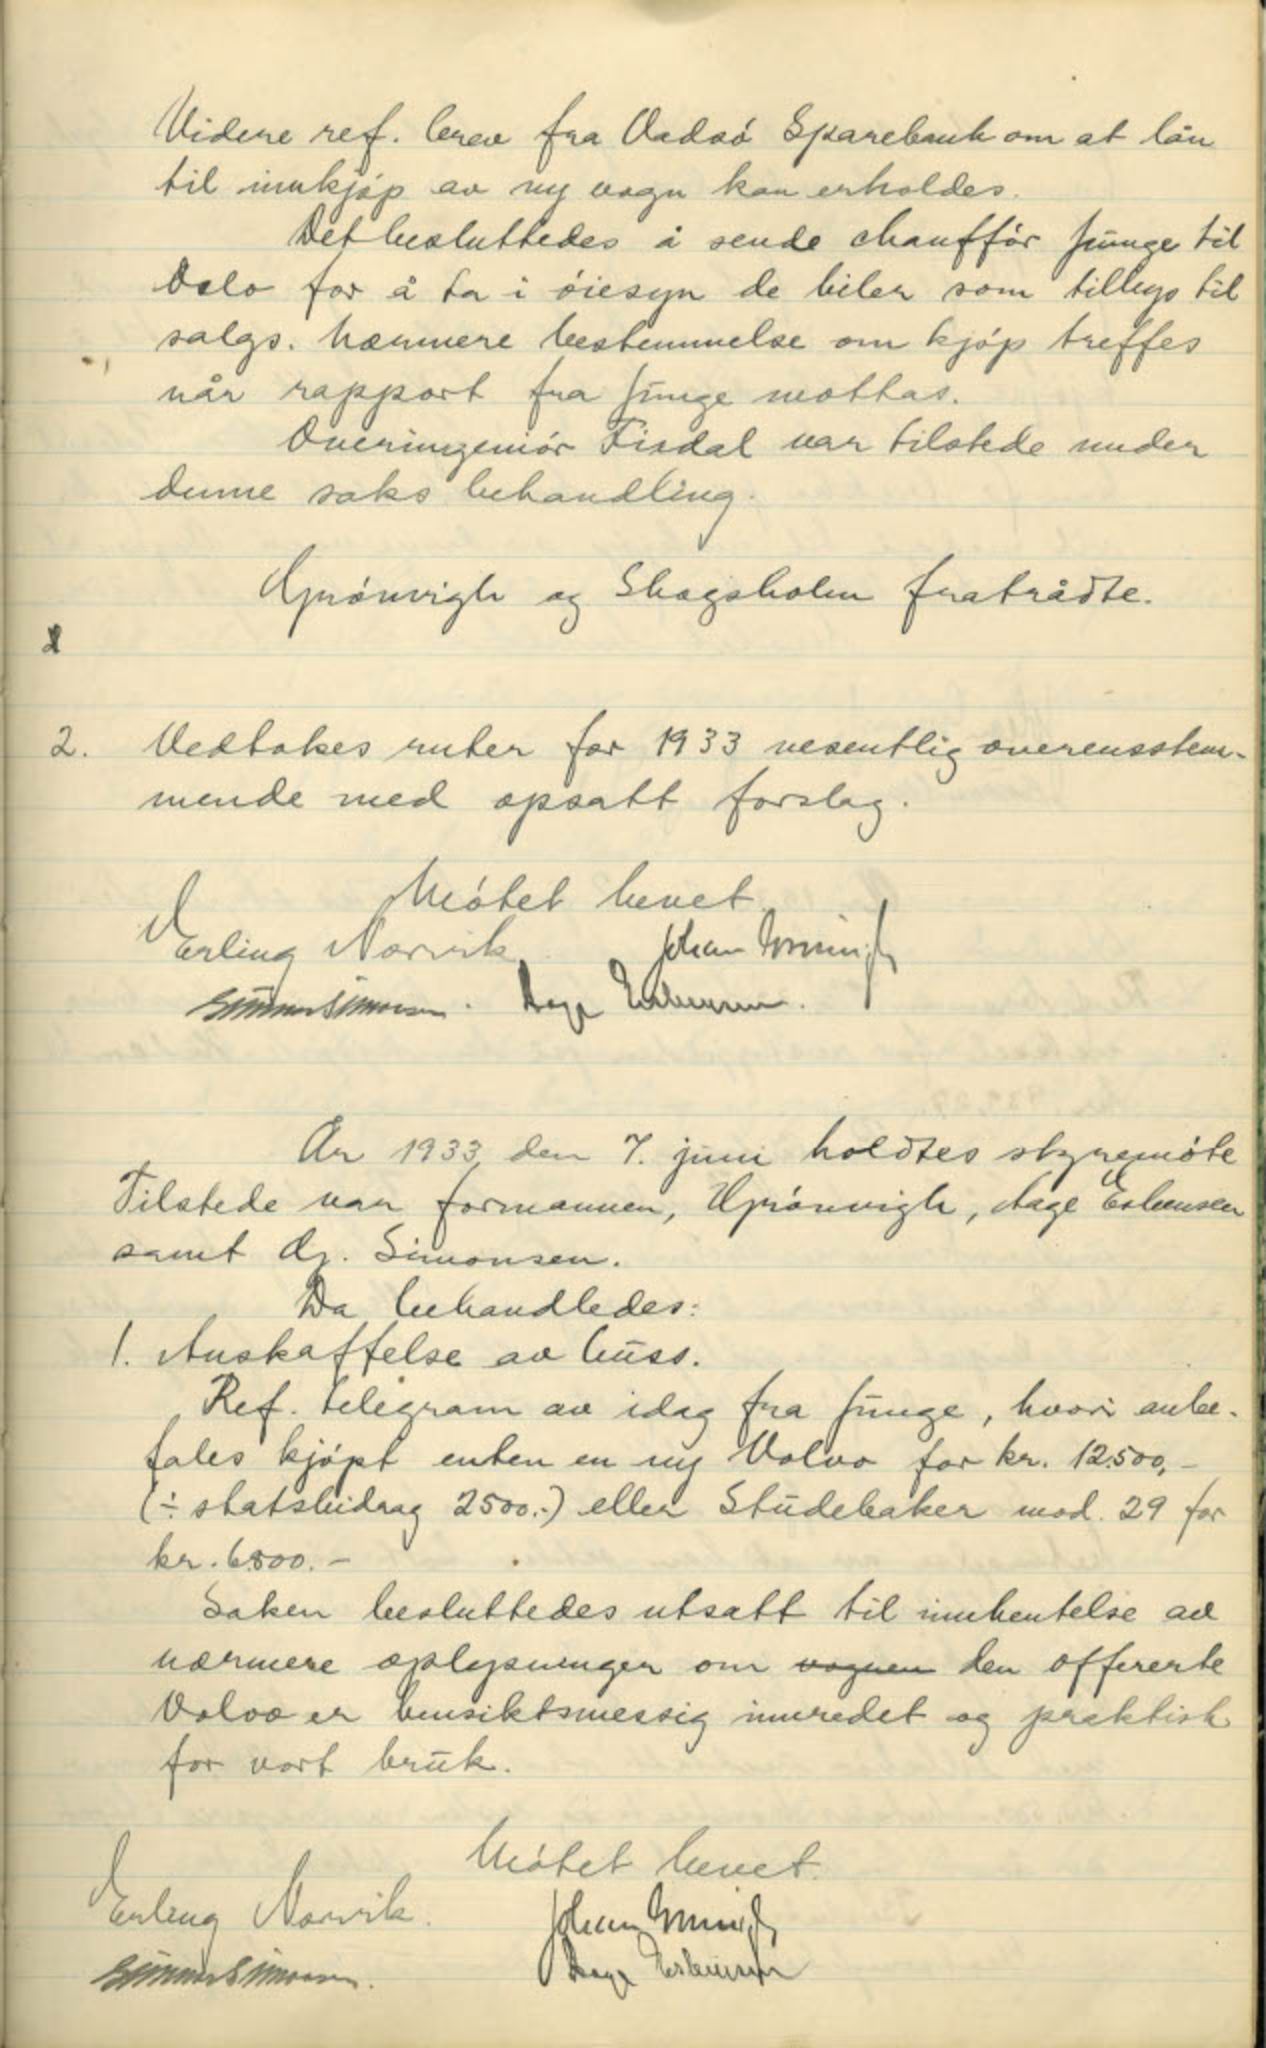 Videre ref. brev fra Vadsö Sparebank om at lån
til innkjöp av ny vogn kan erholdes.
Det besluttedes å sende chaufför Junge til
Oslo for å ta i öiesyn de biler som tilbys til
salgs. Nærmere bestemmelse om kjöp treffes
når rapport fra Junge mottas.
Overingeniör Fisdal var tilstede under
denne saks behandling.
Grönvigh og Skogsholm fratrådte.
2. Vedtokes ruter for 1933 vesentlig overensstem-
mende med opsatt forslag.
Mötet hevet
Erling Norvik Johan Grönvigh
Gunnar Simonsen. Aage Esbensen.
År 1933 den 7. juni holdtes styremöte
Tilstede var formannen, Grönvigh, Aage Esbensen
samt G. Simonsen.
Da behandledes:
1. Anskaffelse av buss.
Ref. telegram av idag fra Junge, hvori anbe-
fales kjöpt enten en ny Volvo for kr. 12.500,-
(÷ statsbidrag 2500.-) eller Studebaker mod. 29 for
kr. 6.800.-
Saken besluttedes utsatt til innhentelse av
nærmere oplysninger om vognen den offererte
Volvo er hensiktsmessig innredet og praktisk
for vort bruk.
Mötet hevet.
Erling Norvik. Johan Grönvigh
Gunnar Simonsen. Aage Esbensen